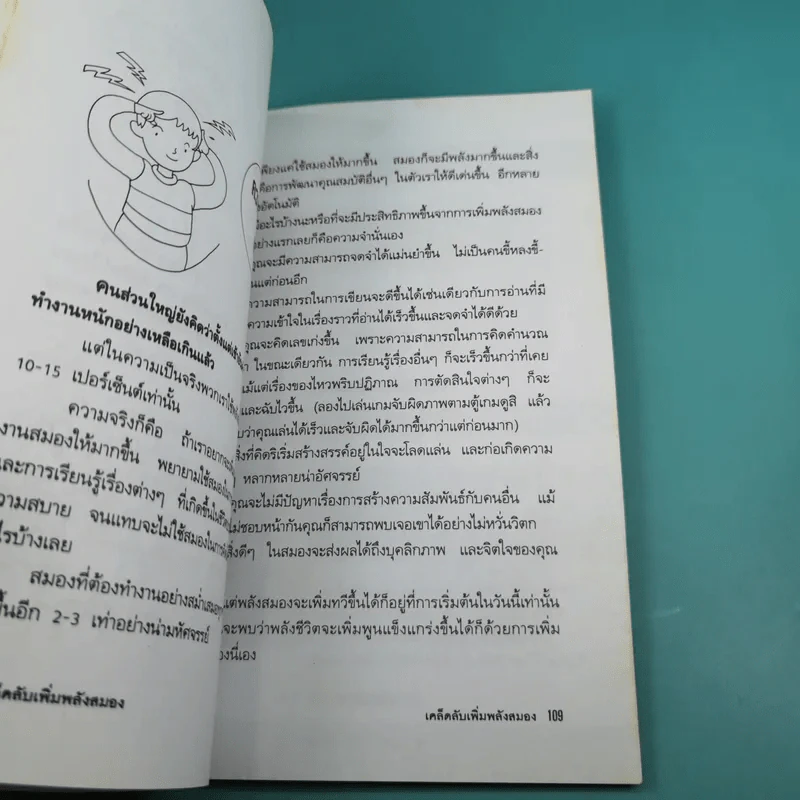 คนส่วนใหญ่ยังคิดว่าตั้งแต่
ทำงานหนักอย่างเหลือเกินแล้ว
แต่ในความเป็นจริงพวกเราใช้
10-15 เปอร์เซ็นต์เท่านั้น
ความจริงก็คือ ถ้าเราอยากจะ
งานสมองให้มากขึ้น พยายามใช้สมอง
และการเรียนรู้เรื่องต่างๆ ที่เกิดขึ้นใน
ความสบาย จนแทบจะไม่ใช้สมองในการ
ไรบ้างเลย
สมองที่ต้องทำงานอย่างสม่ำเสมอ
ขึ้นอีก 2-3 เท่าอย่างน่ามหัศจรรย์
เคล็ดลับเพิ่มพลังสมอง
เพียงแค่ใช้สมองให้มากขึ้น สมองก็จะมีพลังมากขึ้นและสิ่ง
คือการพัฒนาคุณสมบัติอื่นๆ ในตัวเราให้ดีเด่นขึ้น อีกหลาย
อัตโนมัติ
มีอะไรบ้างนะหรือที่จะมีประสิทธิภาพขึ้นจากการเพิ่มพลังสมอง
อย่างแรกเลยก็คือความจำนั่นเอง
คุณจะมีความสามารถจดจำได้แม่นยำขึ้น ไม่เป็นคนขี้หลงขี้-
นแต่ก่อนอีก
ความสามารถในการเขียนจะดีขึ้นได้เช่นเดียวกับการอ่านที่มี
ความเข้าใจในเรื่องราวที่อ่านได้เร็วขึ้นและจดจำได้ดีด้วย
คุณจะคิดเลขเก่งขึ้น เพราะความสามารถในการคิดคำนวณ
ในขณะเดียวกัน การเรียนรู้เรื่องอื่นๆ ก็จะเร็วขึ้นกว่าที่เคย
แม้แต่เรื่องของไหวพริบปฏิภาณ การตัดสินใจต่างๆ ก็จะ
และฉับไวขึ้น (ลองไปเล่นเกมจับผิดภาพตามตู้เกมดูสิ แล้ว
พบว่าคุณเล่นได้เร็วและจับผิดได้มากขึ้นกว่าแต่ก่อนมาก)
สิ่งที่คิดริเริ่มสร้างสรรค์อยู่ในใจจะโลดแล่น และก่อเกิดความ
หลากหลายน่าอัศจรรย์
คุณจะไม่มีปัญหาเรื่องการสร้างความสัมพันธ์กับคนอื่น แม้
ไม่ชอบหน้ากันคุณก็สามารถพบเจอเขาได้อย่างไม่หวั่นวิตก
สิ่งดีๆ ในสมองจะส่งผลได้ถึงบุคลิกภาพ และจิตใจของคุณ
แต่พลังสมองจะเพิ่มทวีขึ้นได้ก็อยู่ที่การเริ่มต้นในวันนี้เท่านั้น
จะพบว่าพลังชีวิตจะเพิ่มพูนแข็งแกร่งขึ้นได้ก็ด้วยการเพิ่ม
องนี่เอง
เคล็ดลับเพิ่มพลังสมอง 109